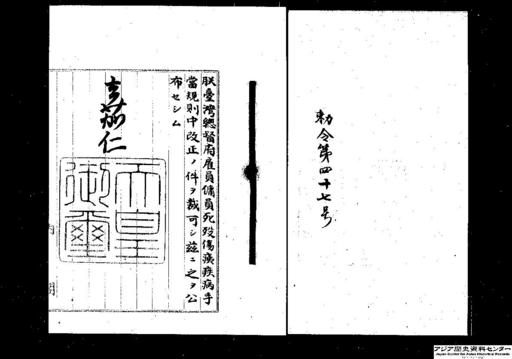 勅令第四十七号
朕臺灣總督府雇員傭員死歿傷痍疾病手
當規則中改正ノ件ヲ裁可シ茲ニ之ヲ公
布セシム
嘉仁
天皇
御璽
アジア歴史資料センター
Japan Center for Asian Historical Records